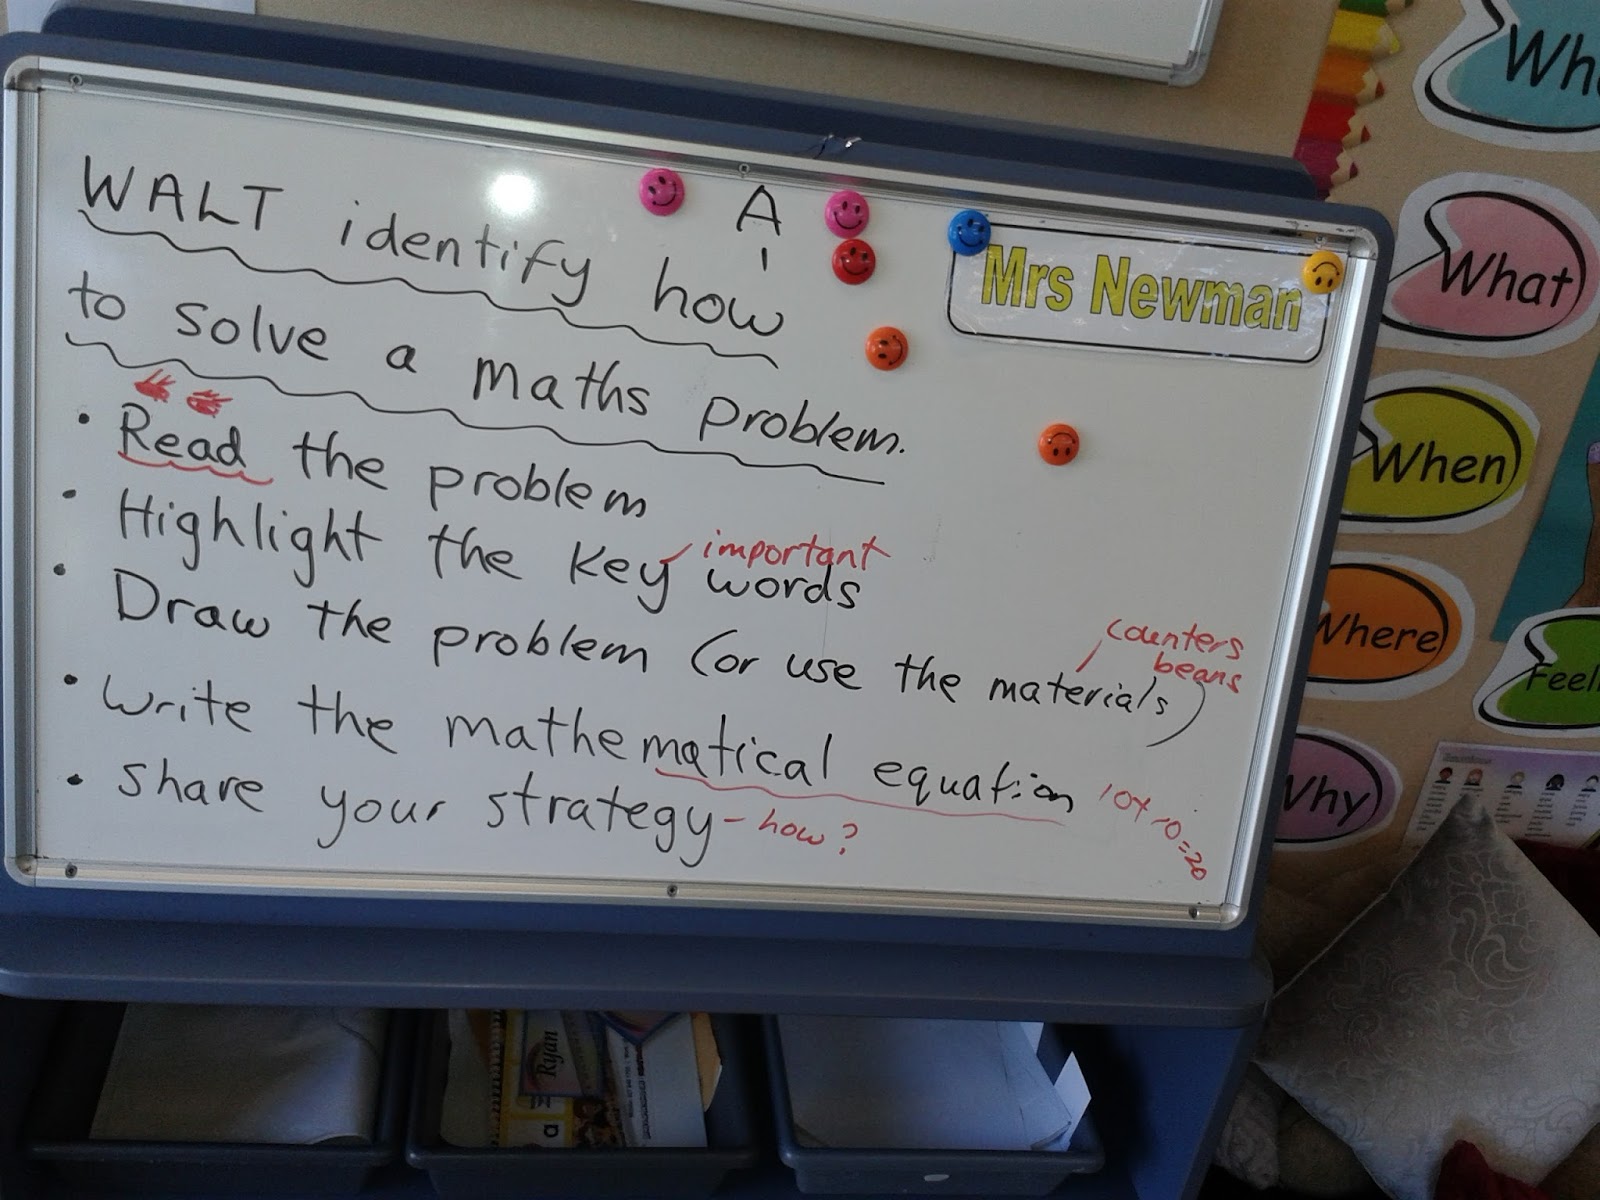 A
WALT identify how
to solve a maths problem.
Mrs Newman
• Read the problem
• Highlight the key words
important
• Draw the problem (or use the materials)
counters
beans
• Write the mathematical equation
10+10=20
• Share your strategy - how?
What
When
Where
Why
Ryan
a